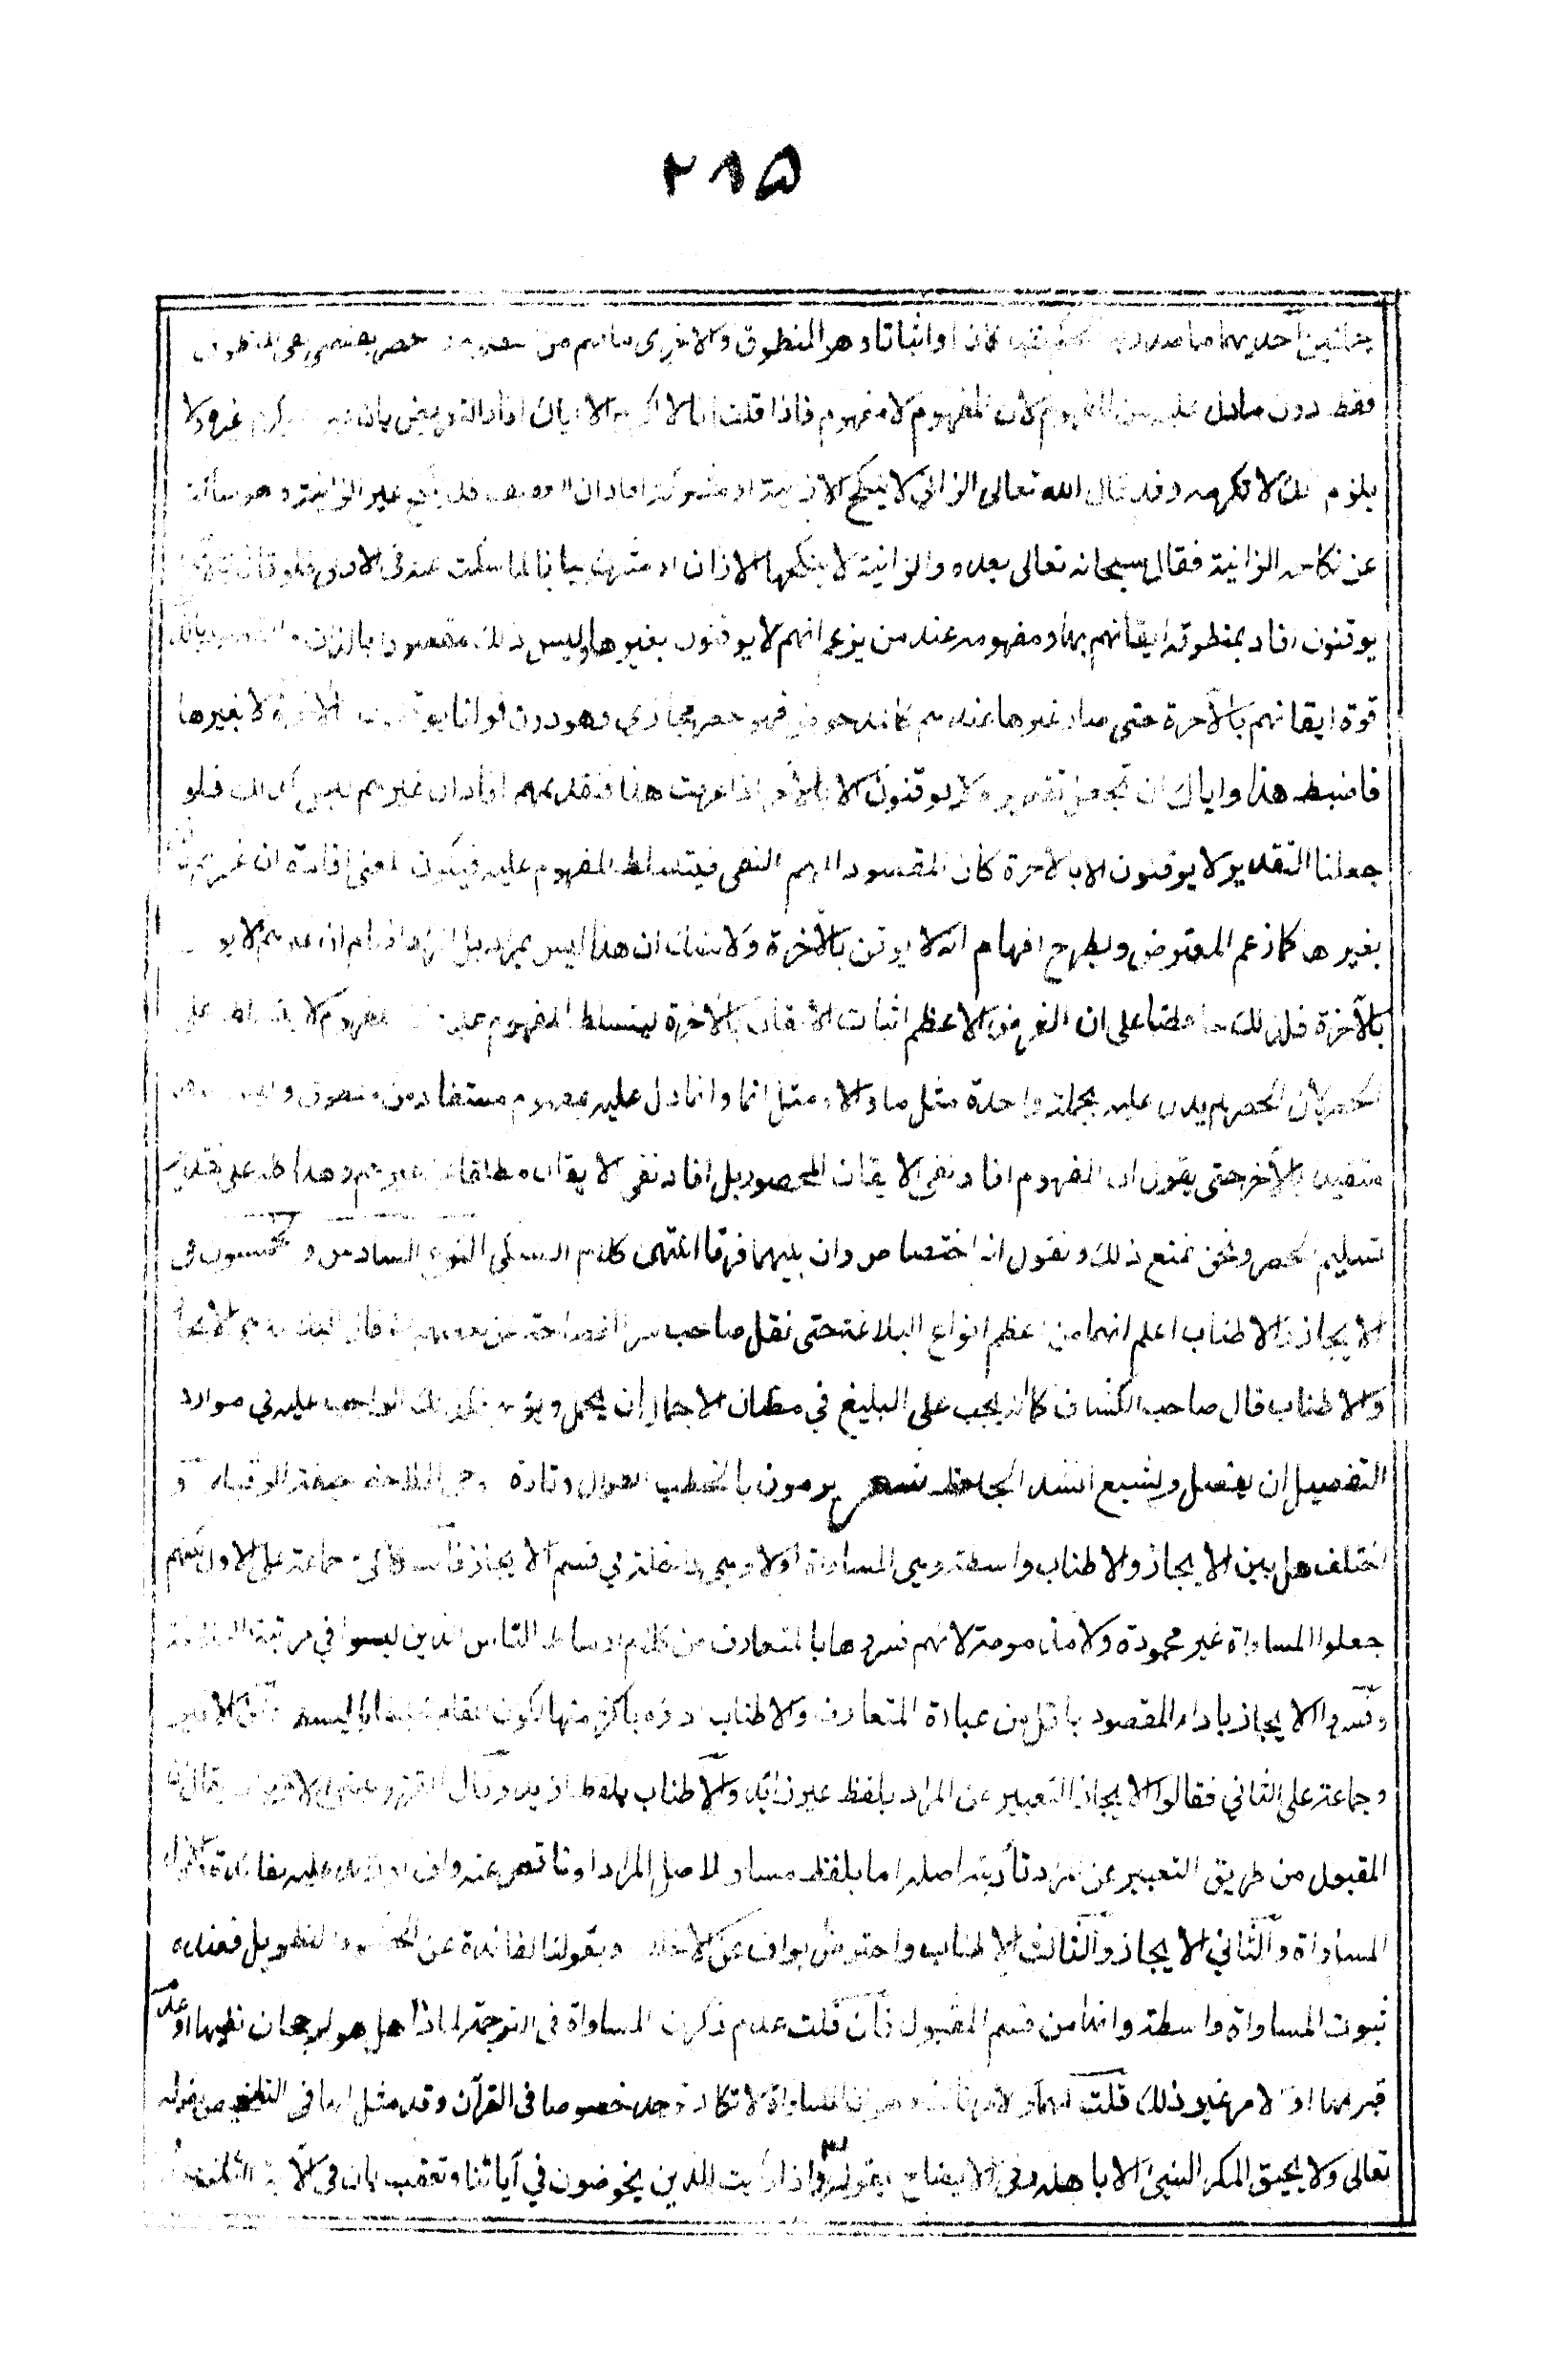 ٢٨٥
جملتين احديهما ما صدر به الحكم نفيا كان او اثباتا وهو المنطوق والاخرى ما فهم من التقديم والحصر يقتضى نفى المنطوق
فقط دون ما دل عليه من المفهوم لان المفهوم لا مفهوم له فاذا قلت انا لا اكرم الا اياك افاد التعريض بان غيرك يكرم غيره ولا
يلزم انك لا تكرمه وقد قال الله تعالى الزاني لا ينكح الا زانية او مشركة افاد ان العفيف قد ينكح غير الزانية وهو ساكت
عن نكاحه الزانية فقال سبحانه تعالى بعده والزانية لا ينكحها الا زان او مشرك بيانا لما سكت عنه فى الاولى فلو قال بالآخرة
يوقنون افاد بمنطوقه ايقانهم بها ومفهومه عند من يزعم انهم لا يوقنون بغيرها وليس ذلك مقصودا بالذات والمقصود بالذات
قوة ايقانهم بالآخرة حتى صار غيرها عندهم كالمدحوض فهو حصر مجازى وهو دون قولنا يوقنون بالآخرة لا بغيرها
فاضبط هذا واياك ان تجعل تقديره لا يوقنون الا بالآخرة اذا عرفت هذا فتقديم هم افاد ان غيرهم ليس كذلك فلو
جعلنا التقدير لا يوقنون الا بالآخرة كان المقصود المهم النفى فيتسلط المفهوم عليه فيكون المعنى افادة ان غيرهم يوقن
بغيرها كما زعم المعترض ويطرح افهام انه لا يوقن بالآخرة ولا شك ان هذا ليس بمراد بل المراد افهام ان غيرهم لا يوقن
بالآخرة فلذلك حافظنا على ان الغرض الاعظم اثبات الايقان بالآخرة ليتسلط المفهوم عليه وان المفهوم لا يتسلط على
الحصر لان الحصر لم يدل عليه بجملة واحدة مثل ما والا ومثل انما وانما دل عليه بمفهوم مستفاد من منطوق وليس احدهما
متقيدا بالآخر حتى يقول ان المفهوم افاد نفى الايقان المحصور بل افاد نفى الايقان مطلقا عن غيرهم وهذا كله على تقدير
تسليم الحصر ونحن نمنع ذلك ونقول انه اختصاص وان بينهما فرقا انتهى كلام السبكى النوع السادس والخمسون فى
الايجاز والاطناب اعلم انهما من اعظم انواع البلاغة حتى نقل صاحب سر الفصاحة عن بعضهم انه قال البلاغة هى الايجاز
والاطناب قال صاحب الكشاف كما انه يجب على البليغ في مظان الاجمال ان يجمل ويوجز فكذلك الواجب عليه في موارد
التفصيل ان يفصل ويشبع انشد الجاحظ شعر يرمون بالخطب الطوال وتارة وحى الملاحظ خيفة الرقباء و
اختلف هل بين الايجاز والاطناب واسطة وهى المساواة اولا وهى داخلة في قسم الايجاز فالسكاكى وجماعة على الاول لكنهم
جعلوا المساواة غير محمودة ولا مذمومة لانهم فسروها بالمتعارف من كلام اوساط الناس الذين ليسوا في مرتبة البلاغة
وفسروا الايجاز باداء المقصود باقل من عبارة المتعارف والاطناب اداءه باكثر منها لكون المقام خليقا بالبسط وابن الاثير
وجماعة على الثاني فقالوا الايجاز التعبير عن المراد بلفظ غير زائد والاطناب بلفظ ازيد وقال القزوينى الاقرب ان يقال ان
المقبول من طريق التعبير عن المراد تأدية اصله اما بلفظ مساو لاصل المراد او ناقص عنه واف او زائد عليه لفائدة والاول
المساواة والثاني الايجاز والثالث الاطناب واحترز بواف عن الاخلال وبقولنا لفائدة عن الحشو والتطويل فعنده
ثبوت المساواة واسطة وانها من قسم المقبول فان قلت عدم ذكرك المساواة فى الترجمة لماذا هل هو لرجحان نفيها او عدم
قبولها او لامر غير ذلك قلت لهما ولامر ثالث وهو ان المساواة لا تكاد توجد خصوصا فى القرآن وقد مثل لها فى التلخيص بقوله
تعالى ولا يحيق المكر السيئ الا باهله وفى الايضاح بقوله واذا رأيت الذين يخوضون في آياتنا وتعقب بان فى الآية الثانية